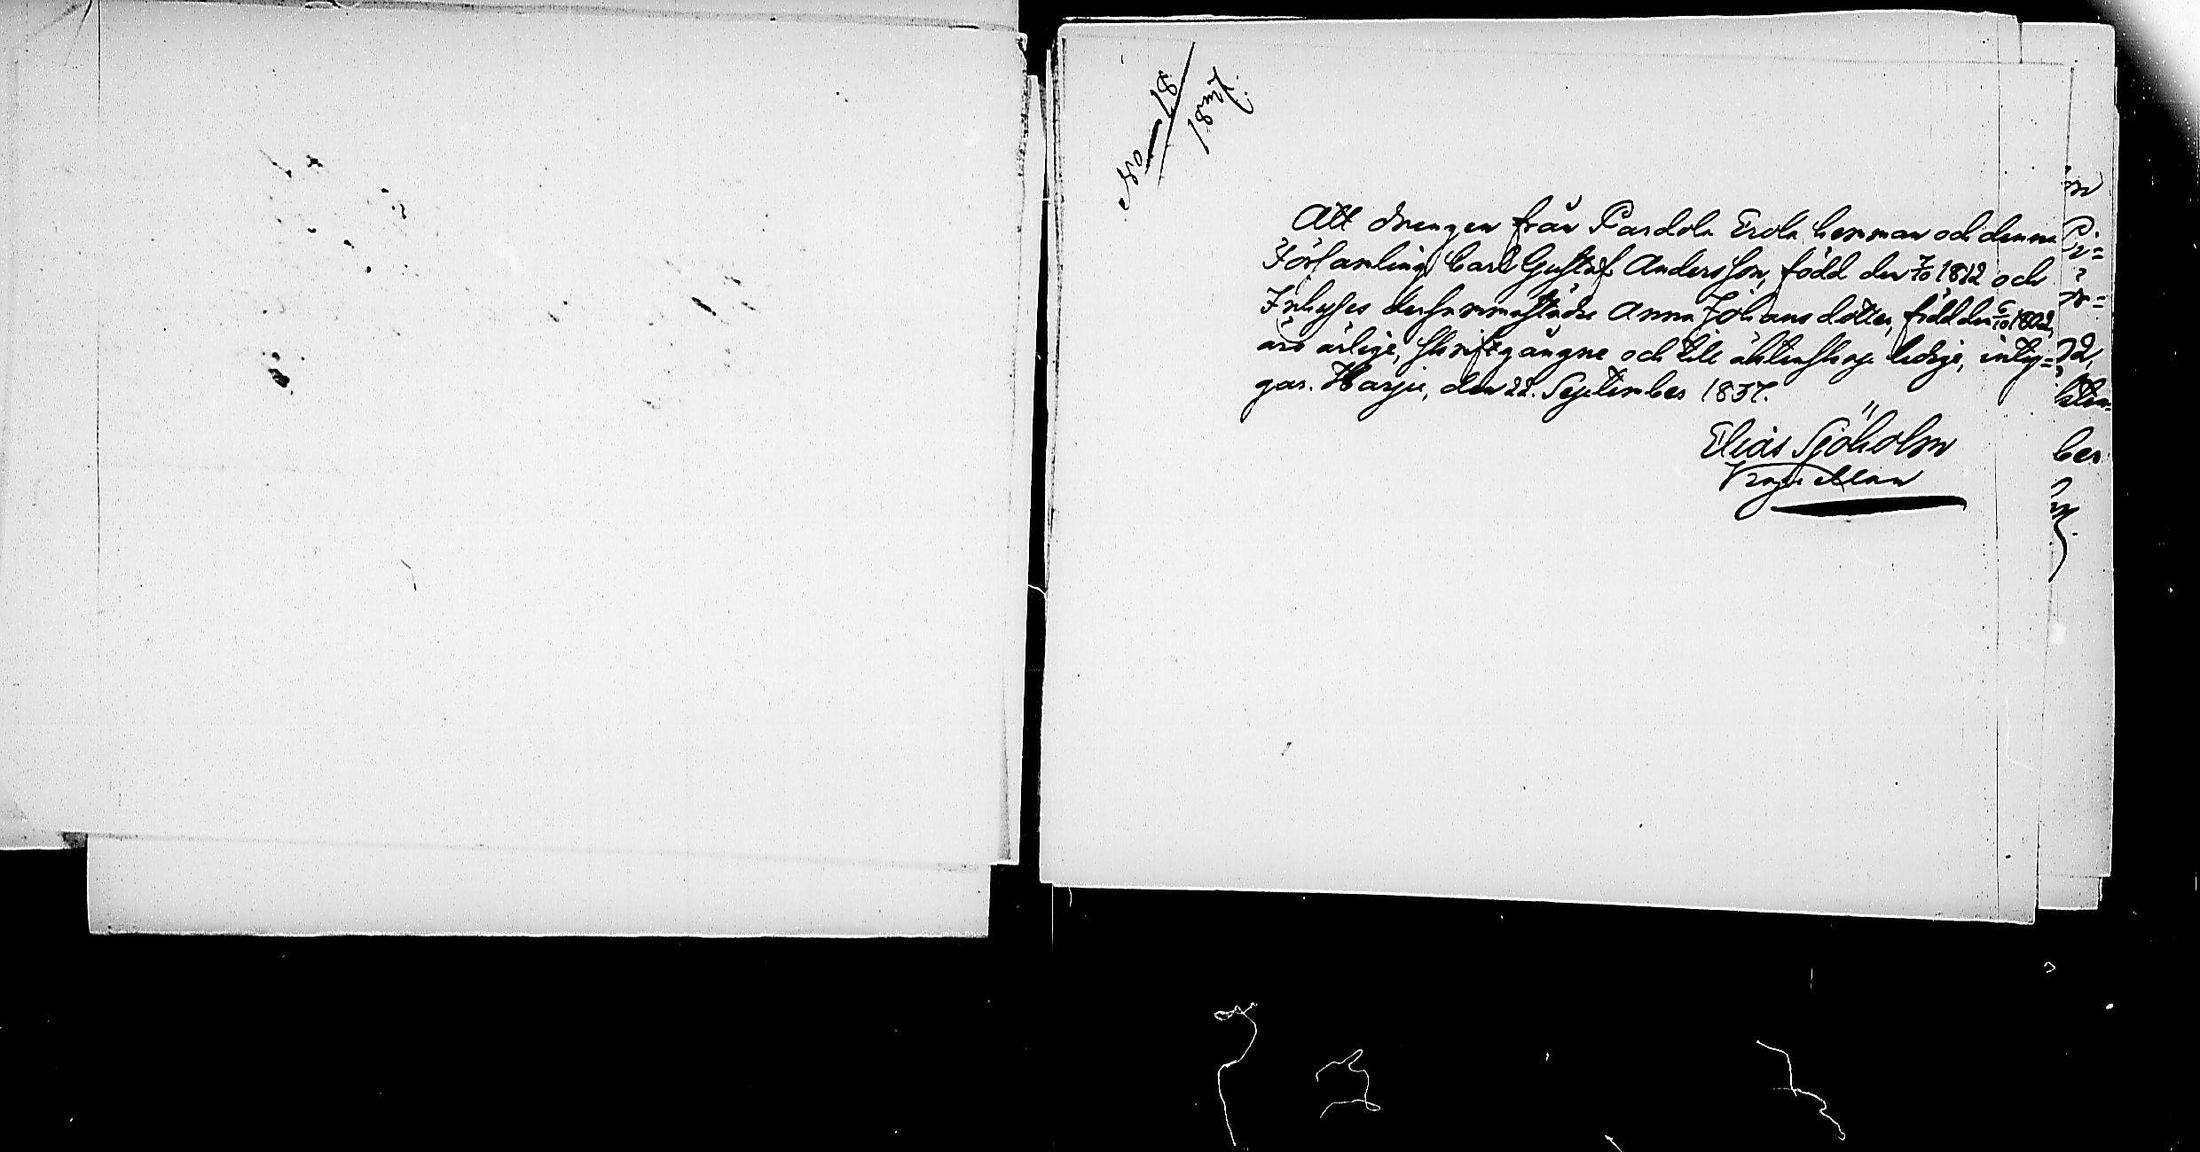 No 18
1837.
Att drengen från Pardola Erola hemman och denna
Församling Carl Gustaf Andersson, född den 7/10 1812 och
Inhyses dersammastädes Anna Johansdotter, född den 6/10 1802,
äro ärlige, skriftgångne och till äktenskap ledige, inty=
gar. Harju, den 22. September 1837.
Elias Sjöholm
ber